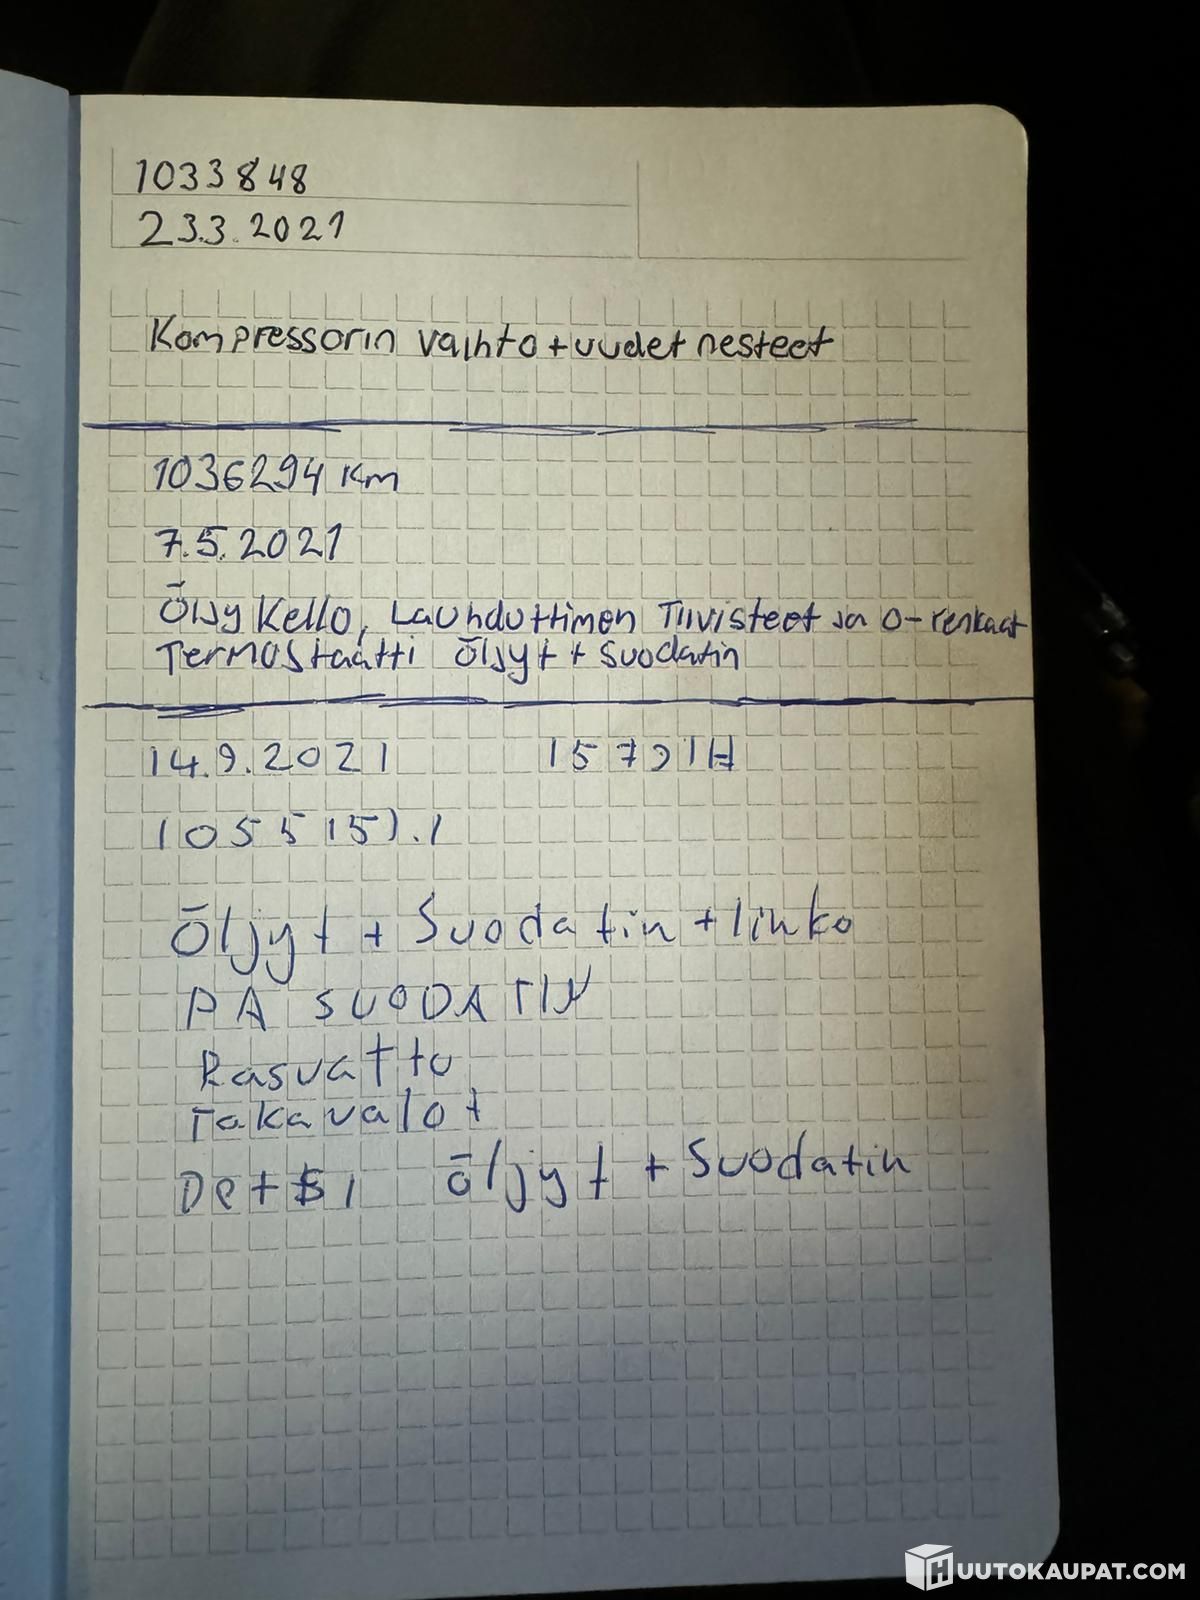 1033848
23.3.2021
Kompressorin vaihto + uudet nesteet
1036294 km
7.5.2021
Öljy kello, Lauhduttimen Tiivisteet ja O-renkaat
Termostaatti Öljyt + suodatin
14.9.2021 15791H
Öljyt + Suodatin + linko
PA SUODATIN
Rasvattu
Takavalot
Öljyt + Suodatin
HUUTOKAUPAT.COM